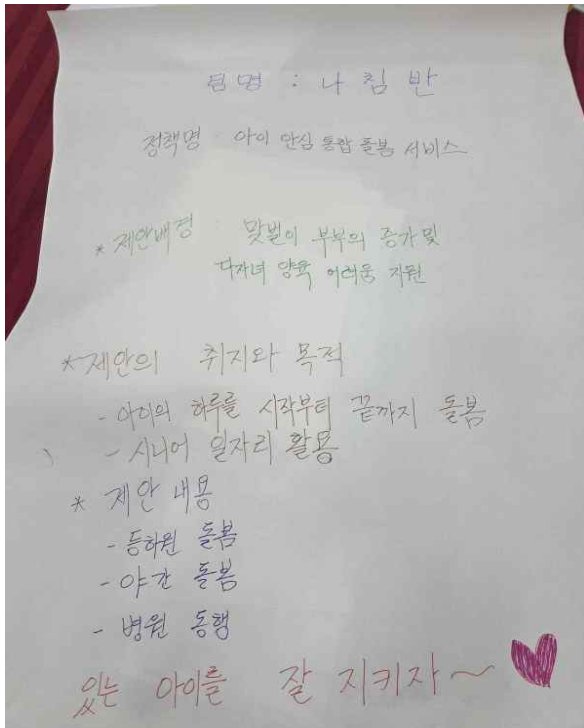 팀명 : 나침반
정책명 : 아이 안심 통합 돌봄 서비스
* 제안배경 : 맞벌이 부부의 증가 및
다자녀 양육 어려움 지원
* 제안의 취지와 목적
- 아이의 하루를 시작부터 끝까지 돌봄
- 시니어 일자리 활용
* 제안 내용
- 등하원 돌봄
- 야간 돌봄
- 병원 동행
있는 아이를 잘 지키자~